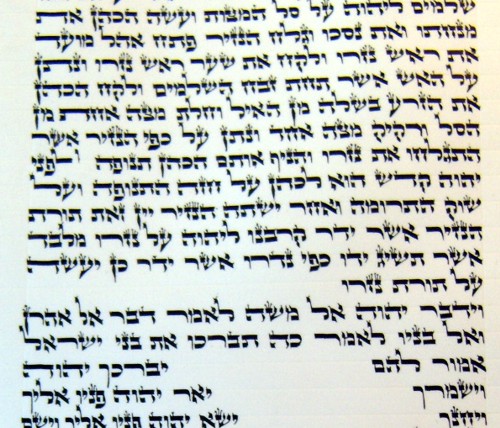 שלמים ליהוה על סל המצות ועשה הכהן את
מנחתו ואת נסכו וגלח הנזיר פתח אהל מועד
את ראש נזרו ולקח את שער ראש נזרו ונתן
על האש אשר תחת זבח השלמים ולקח הכהן
את הזרע בשלה מן האיל וחלת מצה אחת מן
הסל ורקיק מצה אחד ונתן על כפי הנזיר אחר
התגלחו את נזרו והניף אותם הכהן תנופה לפני
יהוה קדש הוא לכהן על חזה התנופה ועל
שוק התרומה ואחר ישתה הנזיר יין זאת תורת
הנזיר אשר ידר קרבנו ליהוה על נזרו מלבד
אשר תשיג ידו כפי נדרו אשר ידר כן יעשה
על תורת נזרו
וידבר יהוה אל משה לאמר דבר אל אהרן
ואל בניו לאמר כה תברכו את בני ישראל
אמור להם יברכך יהוה
וישמרך יאר יהוה פניו אליך
ויחנך ישא יהוה פניו אליך וישם